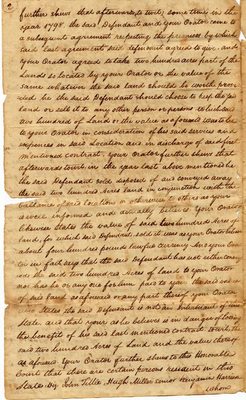 2
further shews that afterwards to wit, some time in the
year 1798 the said Defendant and your Orator came to
a subsequent agreement respecting the premises by which
said last agreement said defendant agreed to give and
your Orator agreed to take two hundred acres part of the
Lands so located by your Orator or the value of the
same whatever the said Land should be worth, pro-
vided he the said Defendant should choose to keep the said
Land or sell it to any other person or persons which said
two hundred of Land or the value as aforesaid was to be
to your Orator in consideration of his said services and
expences in said Location and in discharge of said first
mentioned contract. Your Orator further shews that
afterwards to wit in the year last above mentioned he
the said Defendant sold disposed of and conveyed away
the said two hundred acres land in conjunction with the
ballance of said location or otherwise to others as your Orator
is since informed and actually believes. Your Orator
Charges State the value of said two hundred Acres of
land, for which said defendant sold the same as your Orator believes
about four hundred pounds lawful currency. And your Orator
in fact says that the said Defendant has not either convey-
ed the said two hundred Acres of land to your Orator
nor has he or any one for him paid to your the said value
of said land as aforesaid or any part thereof your Orator
also States the said Defendant is not an Inhabitant of this
State and that your as he believes is in danger of losing
the benefit of his said last mentioned contract with the
said two hundred Acres of Land and the value thereof
as aforesaid. Your Orator further shews to this Honorable
Court that there are certain persons resident in this
State Viz John Tillis Hugh Miller senior Benjamin Harrison
whom